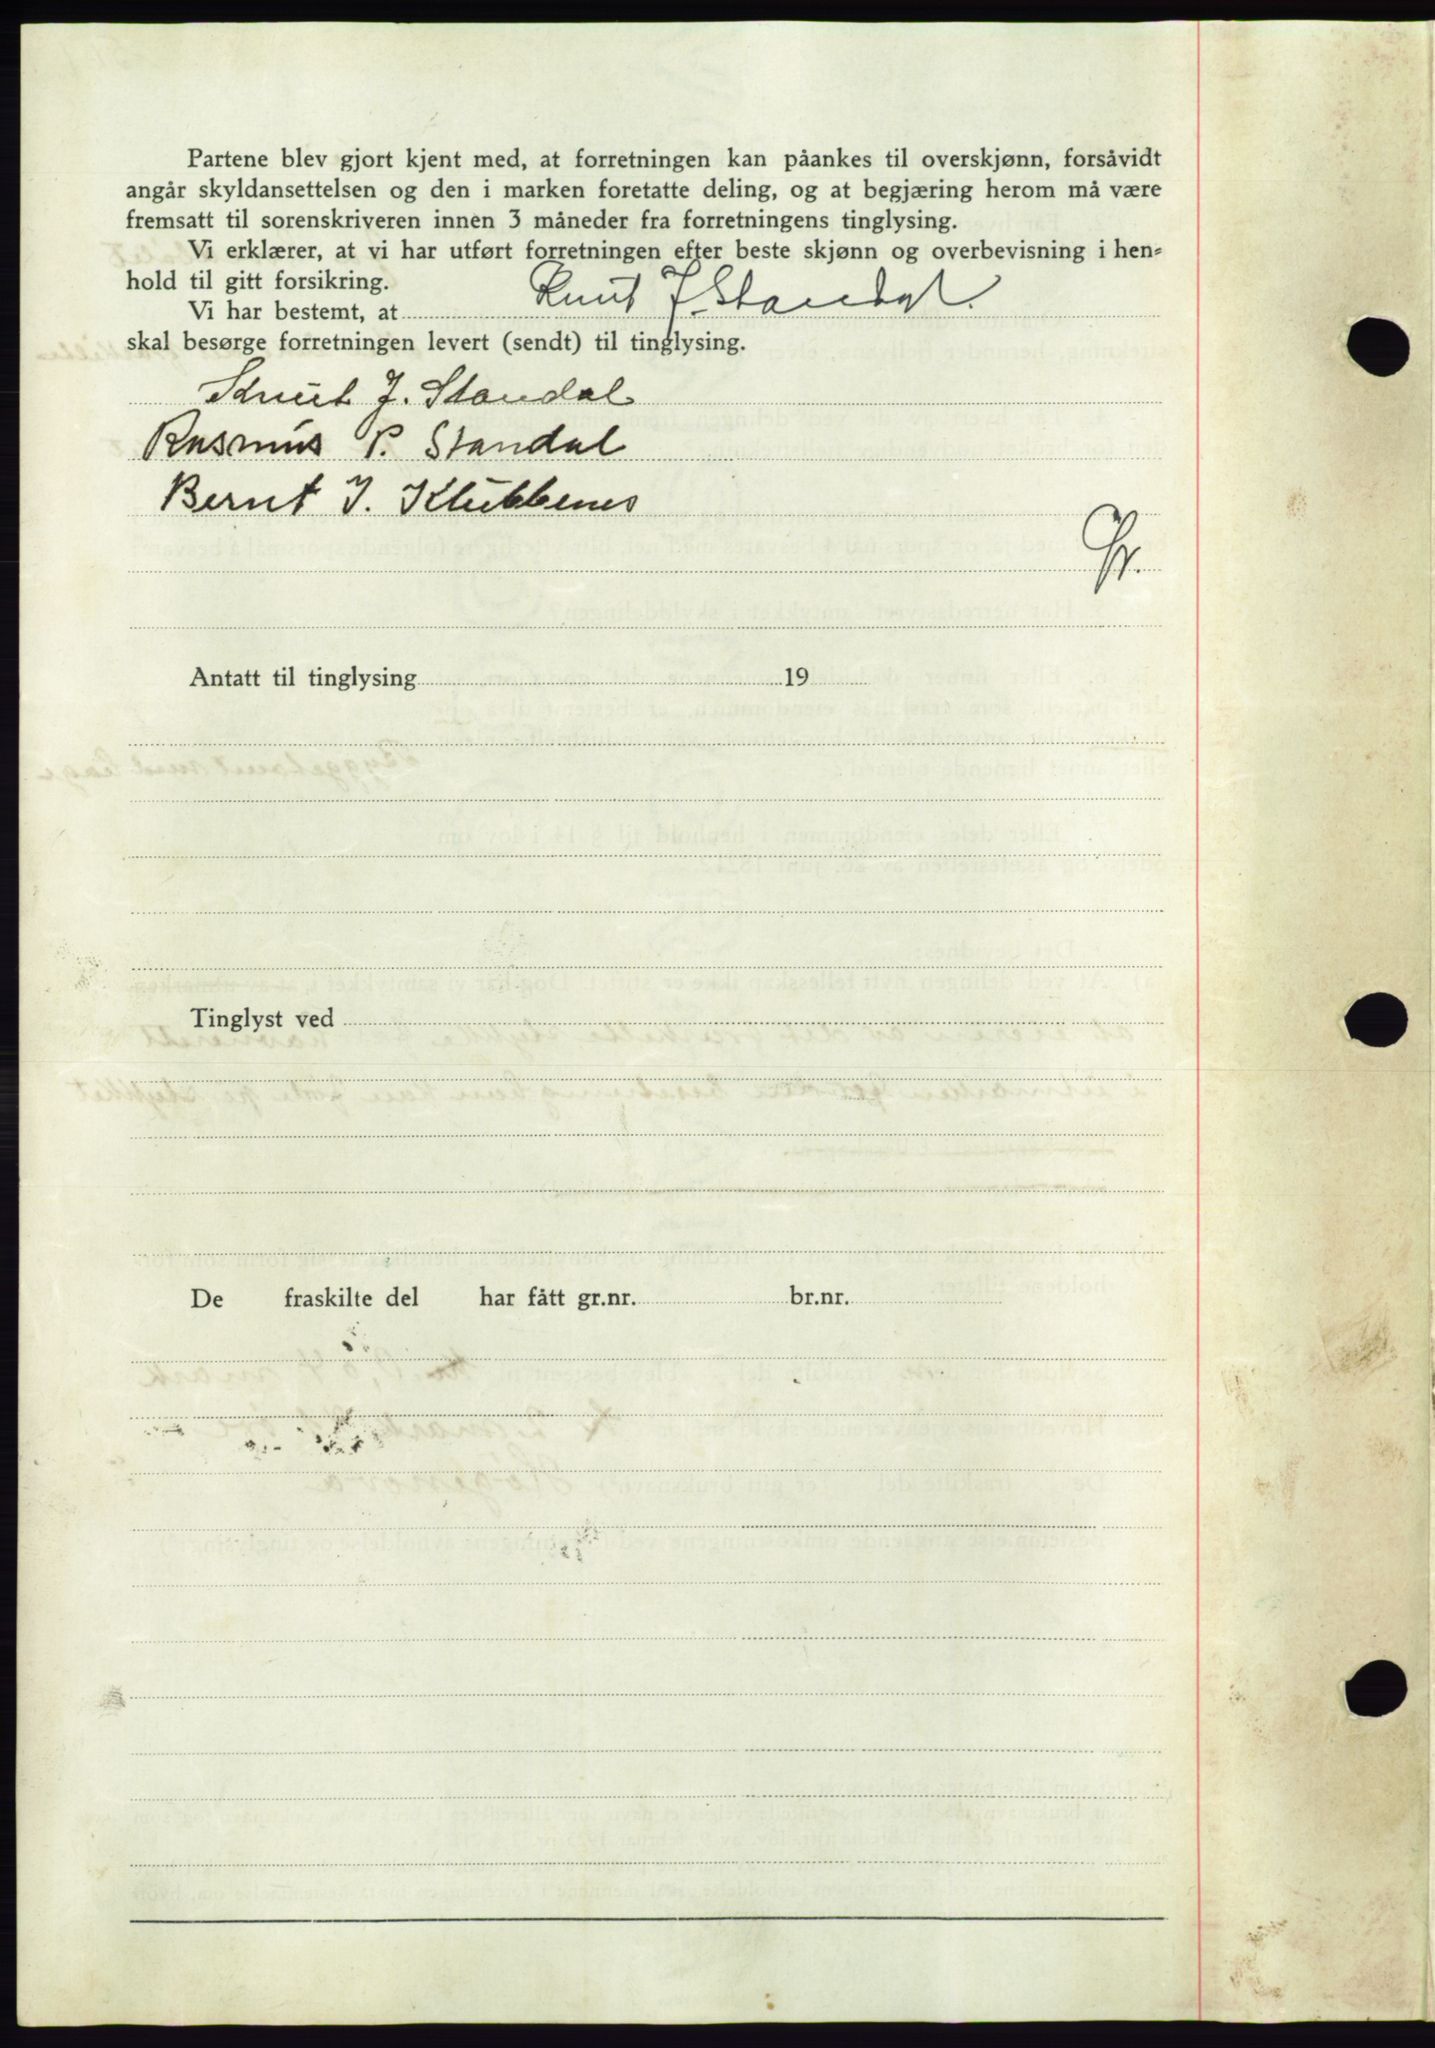 Partene blev gjort kjent med, at forretningen kan påankes til overskjønn, forsåvidt
angår skyldansettelsen og den i marken foretatte deling, og at begjæring herom må være
fremsatt til sorenskriveren innen 3 måneder fra forretningens tinglysing.
Vi erklærer, at vi har utført forretningen efter beste skjønn og overbevisning i hen-
hold til gitt forsikring.
Vi har bestemt, at Knut J. Standal.
skal besørge forretningen levert (sendt) til tinglysing.
Knut J. Standal
Rasmus P. Standal
Bernt J. Klubbenes
Antatt til tinglysing 19
Tinglyst ved
De fraskilte del har fått gr.nr. br.nr.